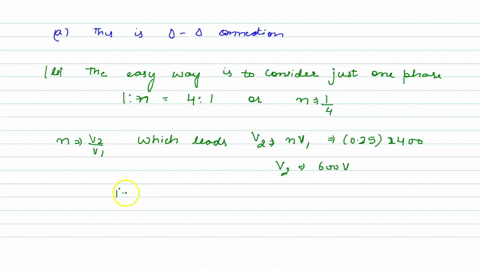 (a) This is Δ - Δ connection
(b) The easy way is to consider just one phase
1:n = 4:1 or n ⇒ 1/4
n ⇒ V2/V1 which leads V2 ⇒ nV1 ⇒ (0.25) 2400
V2 ⇒ 600V